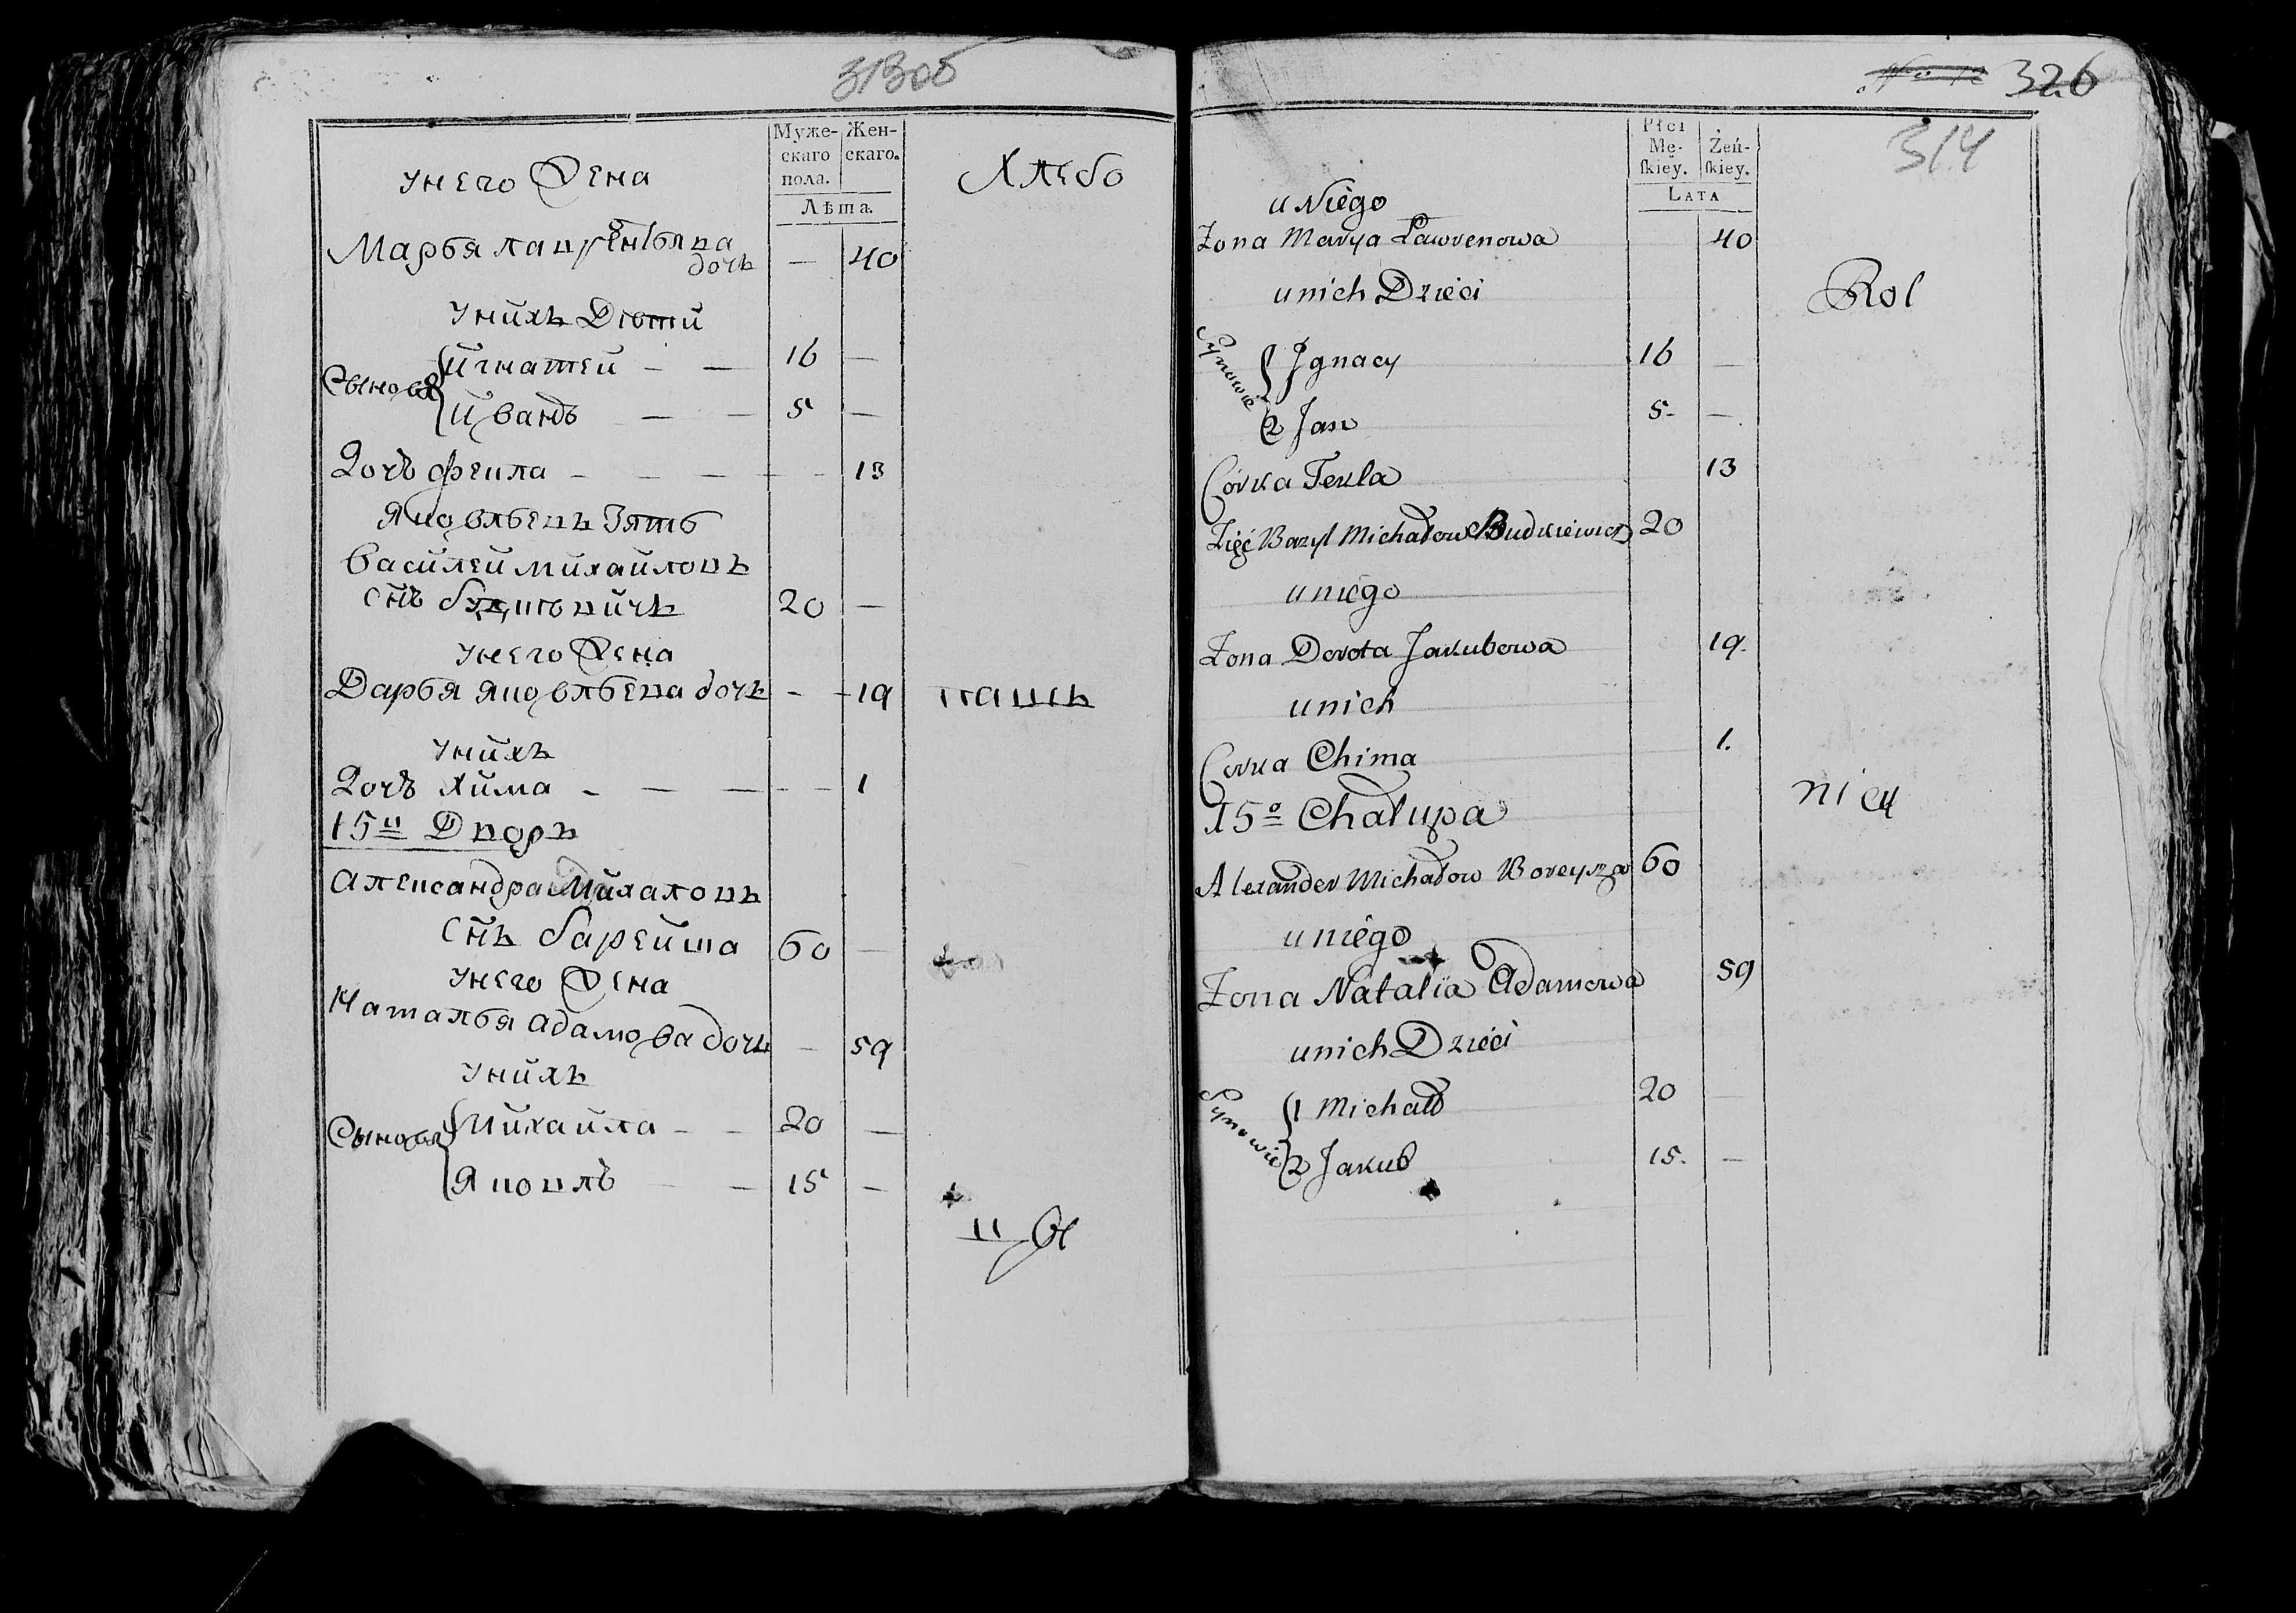 313об
Муже-
скаго
пола.
Жен-
скаго.
Лѣта.
у него Жена
Хлебо
Марья лаврентьева
дочь — 40
У нихъ Дѣти
Сыновя
Игнатей — — 16 —
Иванъ — — 5 —
Дочь фекла — — — — 13
Яковлевъ Зять
Василей михайловъ
снъ 20 —
у него Жена
Дарья яковлева дочь - - 19
пашъ
У нихъ
Дочь Хима - — — - — 1
15й Дворъ
Александра Михаловъ
Снъ барейша 60 —
У него Жена
Наталья адамова дочь — 59
У нихъ
Сыновя
Михайла - - 20 —
Яковлъ — — 15 —
326
314
Płci
Mę-
skiey.
Żeń-
skiey.
LATA
u Niego
Zona Marya Lawrenowa 40
u nich Dzieci
Rol
Synowie
Jgnacy 16 —
2 Jan 5- —
Córka Tekla 13
Zięć Bazyl Michałow Budkiewicz 20
u niego
Zona Dorota Jakubowa 19.
u nich
Corka Chima 1.
nicy
15o Chałupa
Alexander Michałow Boreysza 60
u niego
Zona Natalia Adamowa 59
u nich Dzieci
Synowie
1 Michał 20 —
2 Jakub 15. —